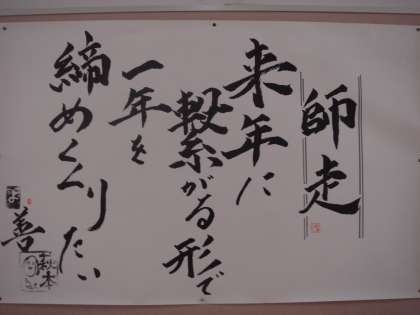 師走
来年に
繋がる形で
一年を
締めくくりたい
善